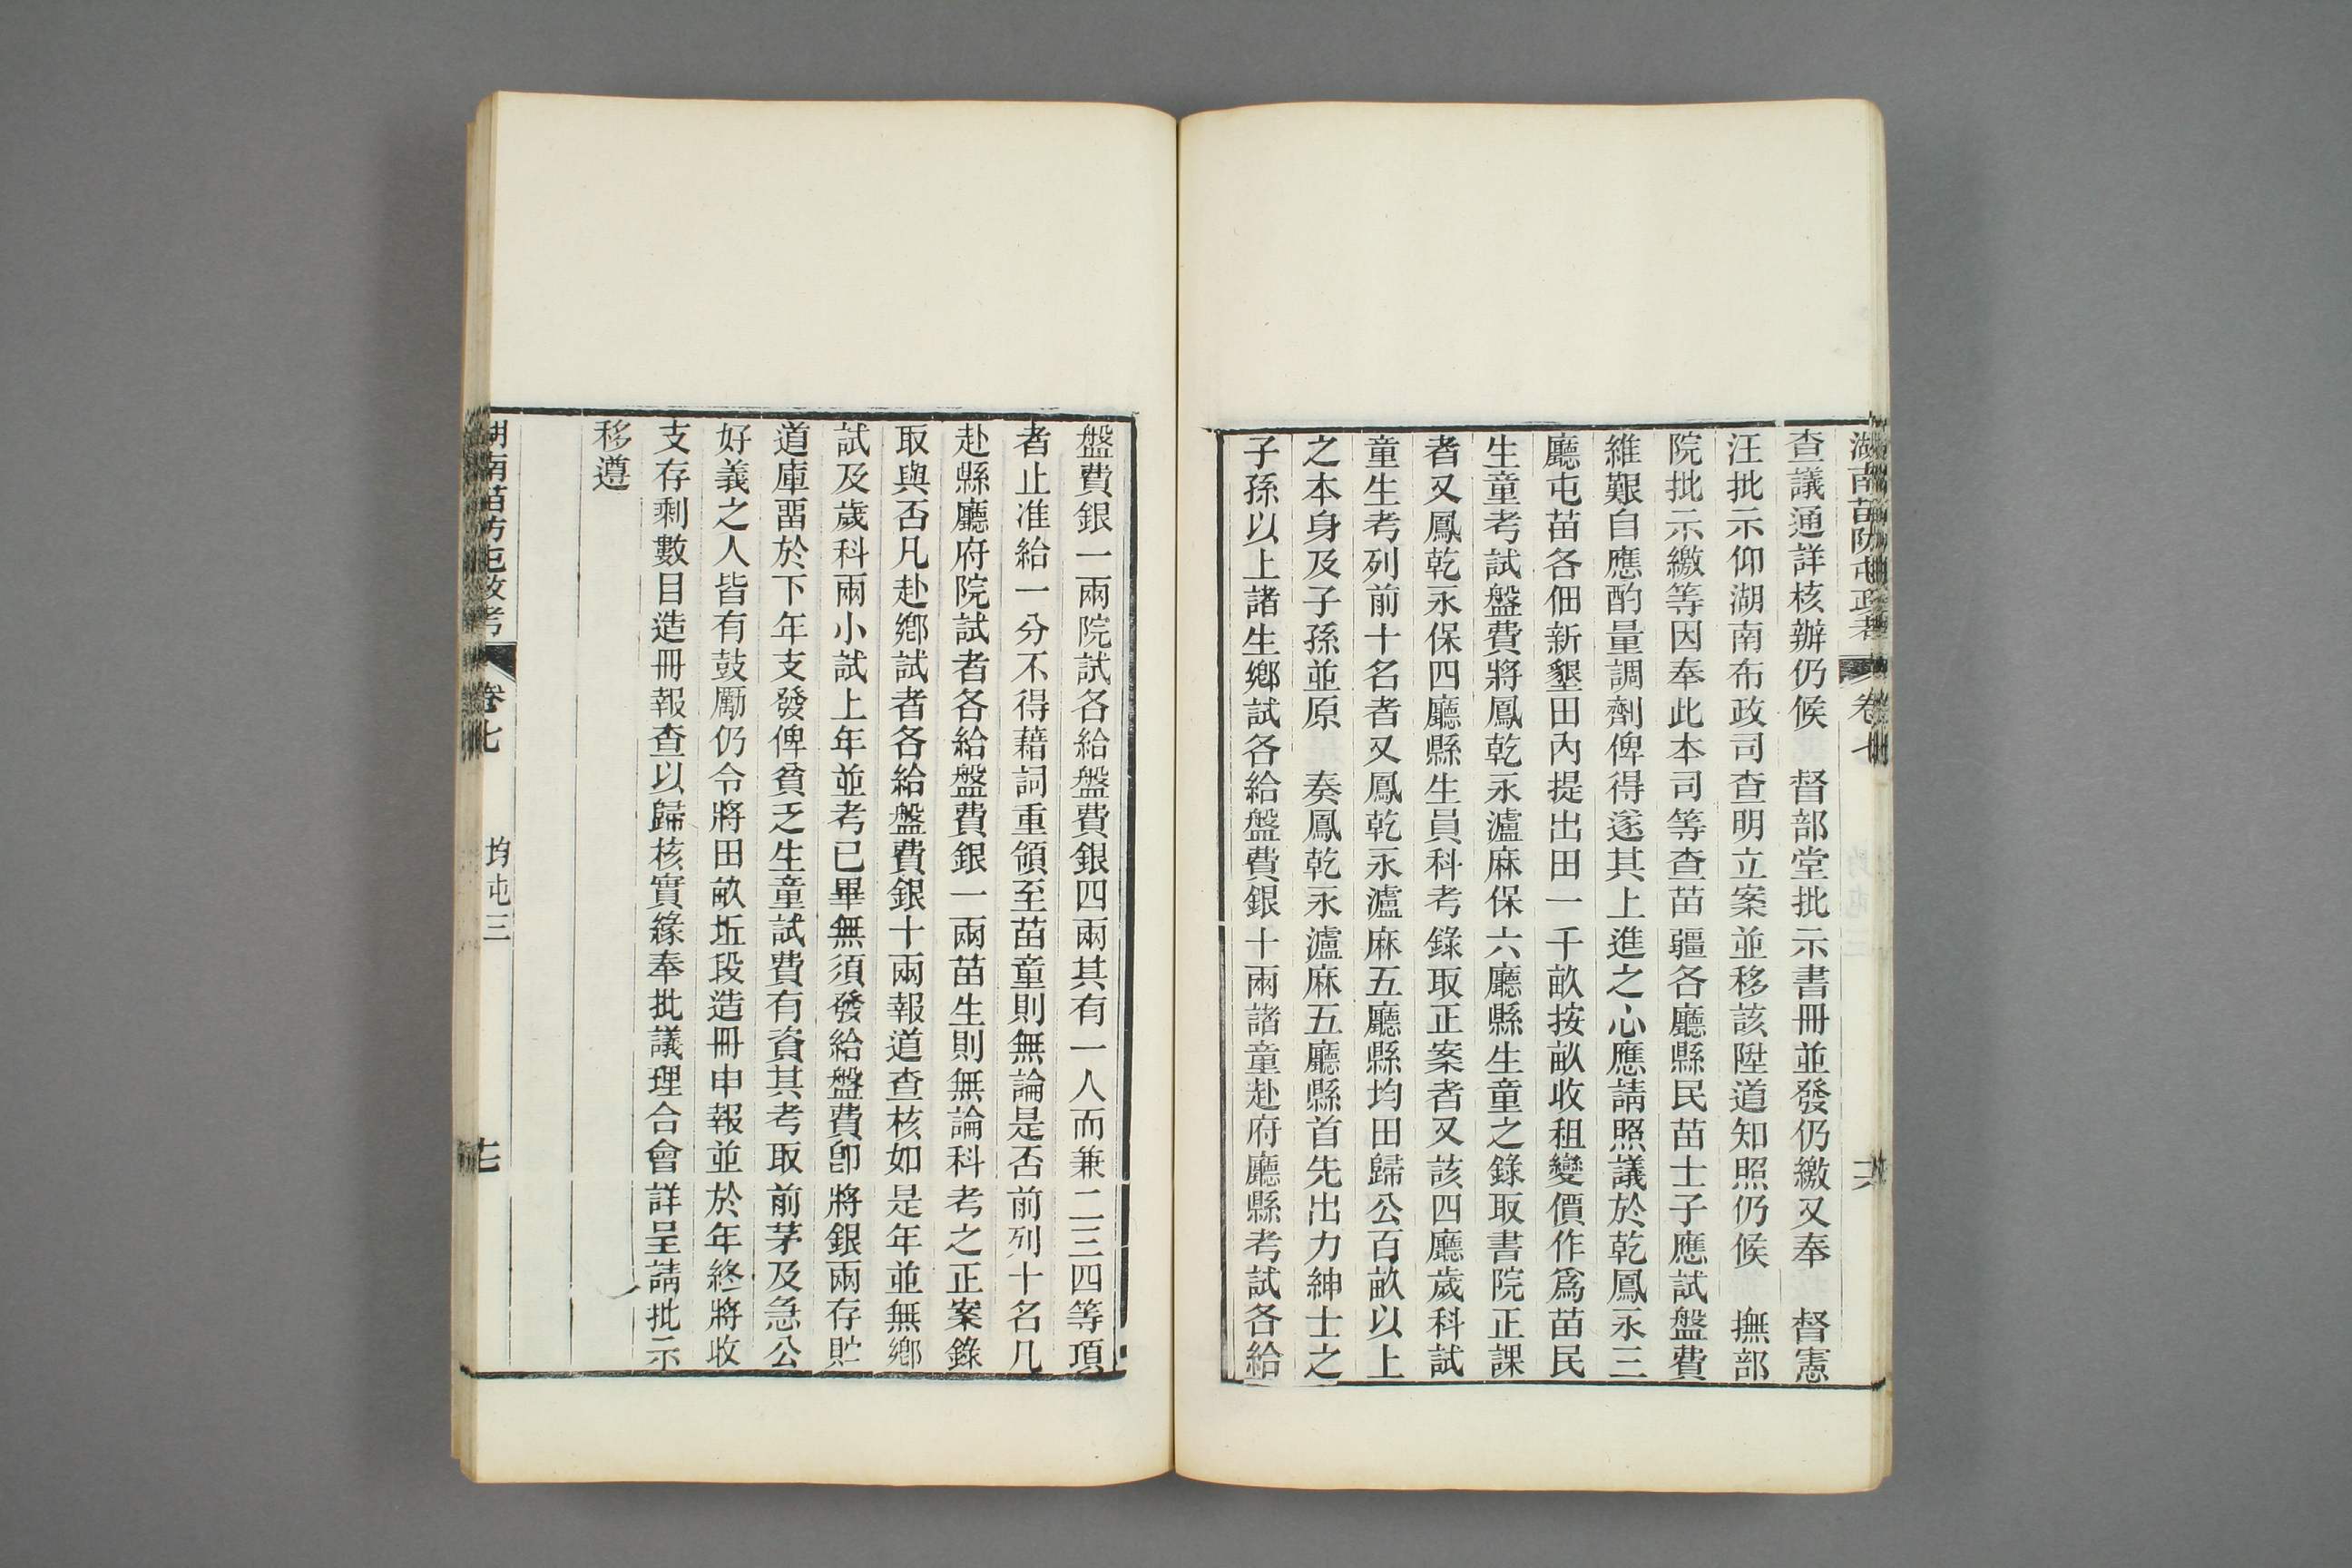 湖南苗防屯政考 卷七
查議通詳核辦仍候 督部堂批示書冊並發仍繳又奉 督憲
汪批示仰湖南布政司查明立案並移該陞道知照仍候 撫部
院批示繳等因奉此本司等查苗疆各廳縣民苗士子應試盤費
維艱自應酌量調劑俾得遂其上進之心應請照議於乾鳳永三
廳屯苗各佃新墾田內提出田一千畝按畝收租變價作為苗民
生童考試盤費將鳳乾永瀘麻保六廳縣生童之錄取書院正課
者又鳳乾永保四廳縣生員科考錄取正案者又該四廳歲科試
童生考列前十名者又鳳乾永瀘麻五廳縣均田歸公百畝以上
之本身及子孫並原 奏鳳乾永瀘麻五廳縣首先出力紳士之
子孫以上諸生鄉試各給盤費銀十兩諸童赴府廳縣考試各給
盤費銀一兩院試各給盤費銀四兩其有一人而兼二三四等項
者止准給一分不得藉詞重領至苗童則無論是否前列十名凡
赴縣廳府院試者各給盤費銀一兩苗生則無論科考之正案錄
取與否凡赴鄉試者各給盤費銀十兩報道查核如是年並無鄉
試及歲科兩小試上年並考已畢無須發給盤費卽將銀兩存貯
道庫畱於下年支發俾貧乏生童試費有資其考取前茅及急公
好義之人皆有鼓勵仍令將田畝坵段造冊申報並於年終將收
支存剩數目造冊報查以歸核實緣奉批議理合會詳呈請批示
移遵
湖南苗防屯政考 卷七 均屯三